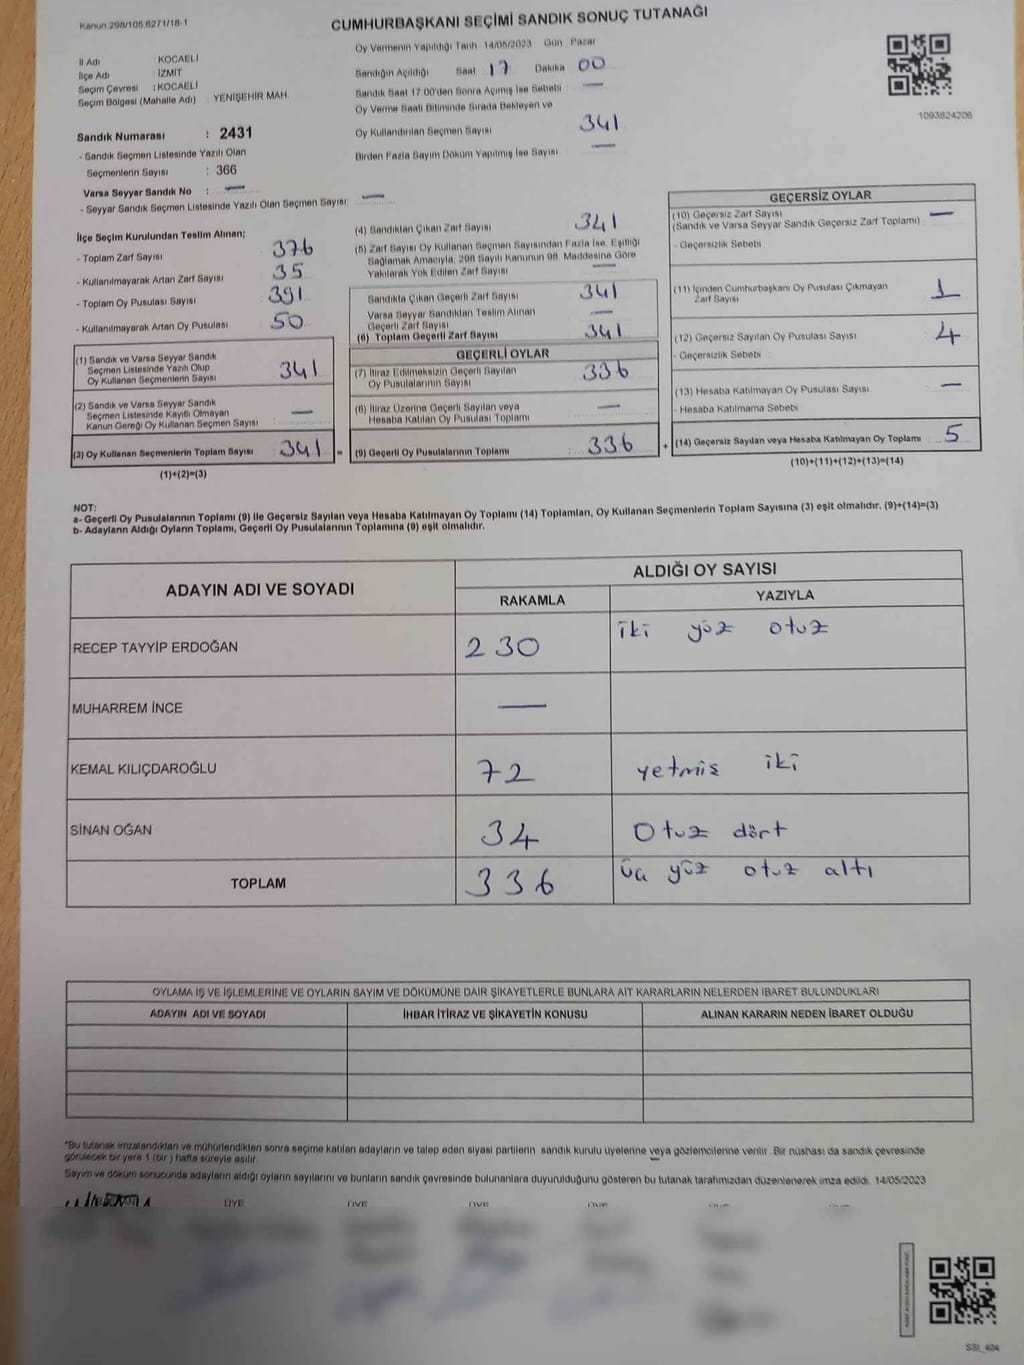 Kanun 298/105.6271/18-1
CUMHURBAŞKANI SEÇİMİ SANDIK SONUÇ TUTANAĞI
İl Adı KOCAELİ
İlçe Adı İZMİT
Seçim Çevresi : KOCAELİ
Seçim Bölgesi (Mahalle Adı) : YENİŞEHİR MAH.
Sandık Numarası : 2431
- Sandık Seçmen Listesinde Yazılı Olan
Seçmenlerin Sayısı : 366
Varsa Seyyar Sandık No : —
- Seyyar Sandık Seçmen Listesinde Yazılı Olan Seçmen Sayısı: —
Oy Vermenin Yapıldığı Tarih 14/05/2023 Gün Pazar
Sandığın Açıldığı Saat 17 Dakika 00
Sandık Saat 17:00'den Sonra Açımış İse Sebebi : —
Oy Verme Saati Bitiminde Sırada Bekleyen ve
Oy Kullandırılan Seçmen Sayısı 341
Birden Fazla Sayım Döküm Yapılmış İse Sayısı —
1093824206
İlçe Seçim Kurulundan Teslim Alınan;
- Toplam Zarf Sayısı 376
- Kullanılmayarak Artan Zarf Sayısı 35
- Toplam Oy Pusulası Sayısı 391
- Kullanılmayarak Artan Oy Pusulası 50
(1) Sandık ve Varsa Seyyar Sandık
Seçmen Listesinde Yazılı Olup
Oy Kullanan Seçmenlerin Sayısı 341
(2) Sandık ve Varsa Seyyar Sandık
Seçmen Listesinde Kayıtlı Olmayan
Kanun Gereği Oy Kullanan Seçmen Sayısı : —
(3) Oy Kullanan Seçmenlerin Toplam Sayısı : 341 =
(1)+(2)=(3)
(4) Sandıktan Çıkan Zarf Sayısı 341
(5) Zarf Sayısı Oy Kullanan Seçmen Sayısından Fazla İse, Eşitliği
Sağlamak Amacıyla, 298 Sayılı Kanunun 98. Maddesine Göre
Yakılarak Yok Edilen Zarf Sayısı —
Sandıkta Çıkan Geçerli Zarf Sayısı 341
Varsa Seyyar Sandıktan Teslim Alınan
Geçerli Zarf Sayısı —
(6) Toplam Geçerli Zarf Sayısı 341
GEÇERLİ OYLAR
(7) İtiraz Edilmeksizin Geçerli Sayılan
Oy Pusulalarının Sayısı 336
(8) İtiraz Üzerine Geçerli Sayılan veya
Hesaba Katılan Oy Pusulası Toplamı —
(9) Geçerli Oy Pusulalarının Toplamı : 336 +
GEÇERSİZ OYLAR
(10) Geçersiz Zarf Sayısı —
(Sandık ve Varsa Seyyar Sandık Geçersiz Zarf Toplamı)
- Geçersizlik Sebebi
(11) İçinden Cumhurbaşkanı Oy Pusulası Çıkmayan
Zarf Sayısı 1
(12) Geçersiz Sayılan Oy Pusulası Sayısı 4
- Geçersizlik Sebebi
(13) Hesaba Katılmayan Oy Pusulası Sayısı —
- Hesaba Katılmama Sebebi
(14) Geçersiz Sayılan veya Hesaba Katılmayan Oy Toplamı 5
(10)+(11)+(12)+(13)=(14)
NOT:
a- Geçerli Oy Pusulalarının Toplamı (9) ile Geçersiz Sayılan veya Hesaba Katılmayan Oy Toplamı (14) Toplamları, Oy Kullanan Seçmenlerin Toplam Sayısına (3) eşit olmalıdır. (9)+(14)=(3)
b- Adayların Aldığı Oyların Toplamı, Geçerli Oy Pusulalarının Toplamına (9) eşit olmalıdır.
ADAYIN ADI VE SOYADI ALDIĞI OY SAYISI
RAKAMLA YAZIYLA
RECEP TAYYİP ERDOĞAN 230 iki yüz otuz
MUHARREM İNCE —
KEMAL KILIÇDAROĞLU 72 yetmiş iki
SİNAN OĞAN 34 Otuz dört
TOPLAM 336 üç yüz otuz altı
OYLAMA İŞ VE İŞLEMLERİNE VE OYLARIN SAYIM VE DÖKÜMÜNE DAİR ŞİKAYETLERLE BUNLARA AİT KARARLARIN NELERDEN İBARET BULUNDUKLARI
ADAYIN ADI VE SOYADI İHBAR İTİRAZ VE ŞİKAYETİN KONUSU ALINAN KARARIN NEDEN İBARET OLDUĞU
"Bu tutanak imzalandıktan ve mühürlendikten sonra seçime katılan adayların ve talep eden siyasi partilerin sandık kurulu üyelerine veya gözlemcilerine verilir. Bir nüshası da sandık çevresinde
görülecek bir yere 1 (bir) hafta süreyle asılır.
Sayım ve döküm sonucunda adayların aldığı oyların sayılarını ve bunların sandık çevresinde bulunanlara duyurulduğunu gösteren bu tutanak tarafımızdan düzenlenerek imza edildi. 14/05/2023
ÜYE ÜYE ÜYE ÜYE
SSI_404